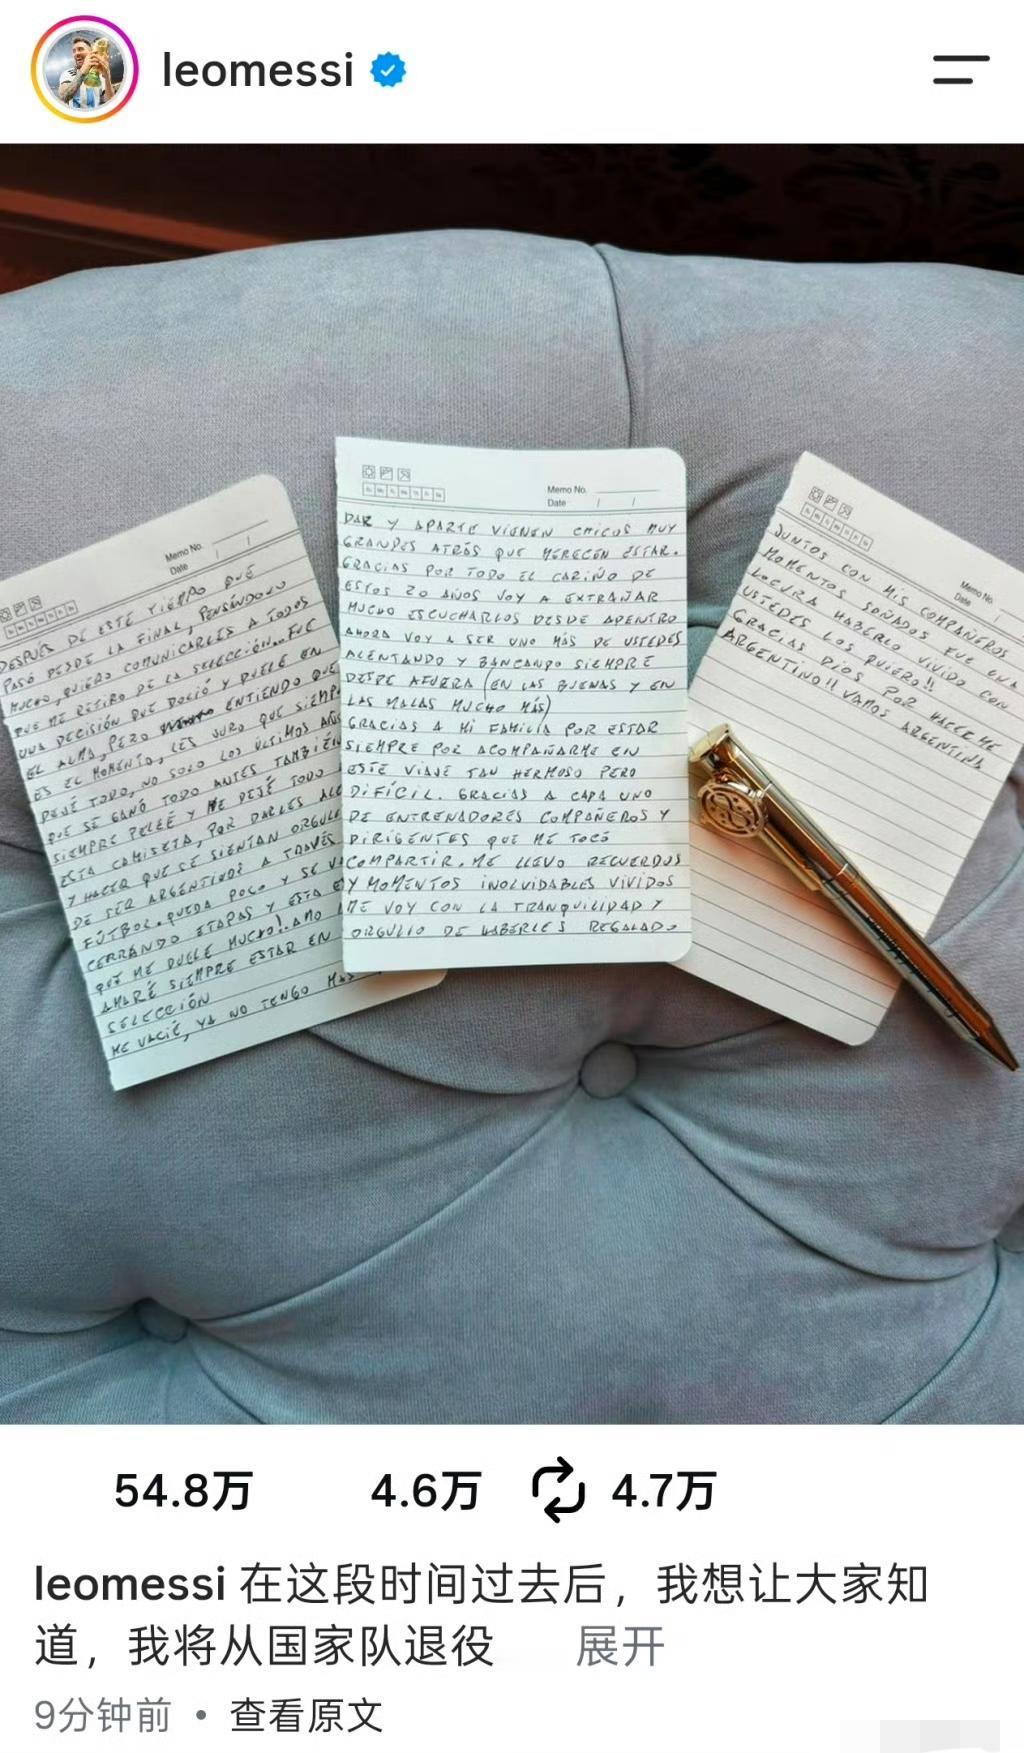 leomessi
Memo No.
Date / /
DESPUÉS DE ESTE TIEMPO QUE
PASÓ DESDE LA FINAL, PENSÁNDOLO
MUCHO, QUIERO COMUNICARLES A TODOS
QUE ME RETIRO DE LA SELECCIÓN... FUE
UNA DECISIÓN QUE DOLIÓ Y DUELE EN
EL ALMA, PERO ENTIENDO QUE
ES EL MOMENTO, LES JURO QUE SIEMP
DEJÉ TODO, NO SOLO LOS ÚLTIMOS AÑOS
QUE SE GANÓ TODO ANTES TAMBIÉN
SIEMPRE PELEÉ Y ME DEJÉ TODO
ESTA CAMISETA, POR DARLES ALE
Y HACER QUE SE SIENTAN ORGULL
DE SER ARGENTINOS A TRAVÉS
FÚTBOL. QUEDA POCO Y SE V
CERRANDO ETAPAS Y ESTA E
QUE ME DUELE MUCHO!. AMO
AMARÉ SIEMPRE ESTAR EN
SELECCIÓN
ME VACIÉ, YA NO TENGO MAS
Memo No.
Date / /
DAR Y APARTE VIENEN CHICOS MUY
GRANDES ATRÁS QUE MERECEN ESTAR.
GRACIAS POR TODO EL CARIÑO DE
ESTOS 20 AÑOS VOY A EXTRAÑAR
MUCHO ESCUCHARLOS DESDE ADENTRO
AHORA VOY A SER UNO MÁS DE USTEDES
ALENTANDO Y BANCANDO SIEMPRE
DESDE AFUERA (EN LAS BUENAS Y EN
LAS MALAS MUCHO MÁS)
GRACIAS A MI FAMILIA POR ESTAR
SIEMPRE POR ACOMPAÑARME EN
ESTE VIAJE TAN HERMOSO PERO
DIFÍCIL. GRACIAS A CADA UNO
DE ENTRENADORES COMPAÑEROS Y
DIRIGENTES QUE ME TOCÓ
COMPARTIR. ME LLEVO RECUERDOS
Y MOMENTOS INOLVIDABLES VIVIDOS
ME VOY CON LA TRANQUILIDAD Y
ORGULLO DE HABERLES REGALADO
Memo No.
Date /
JUNTOS CON MIS COMPAÑEROS
MOMENTOS SOÑADOS FUE UNA
LOCURA HABERLO VIVIDO CON
USTEDES LOS QUIERO!!
GRACIAS DIOS POR HACERME
ARGENTINO!! VAMOS ARGENTINA
54.8万 4.6万 4.7万
leomessi 在这段时间过去后，我想让大家知
道，我将从国家队退役 展开
9分钟前 • 查看原文